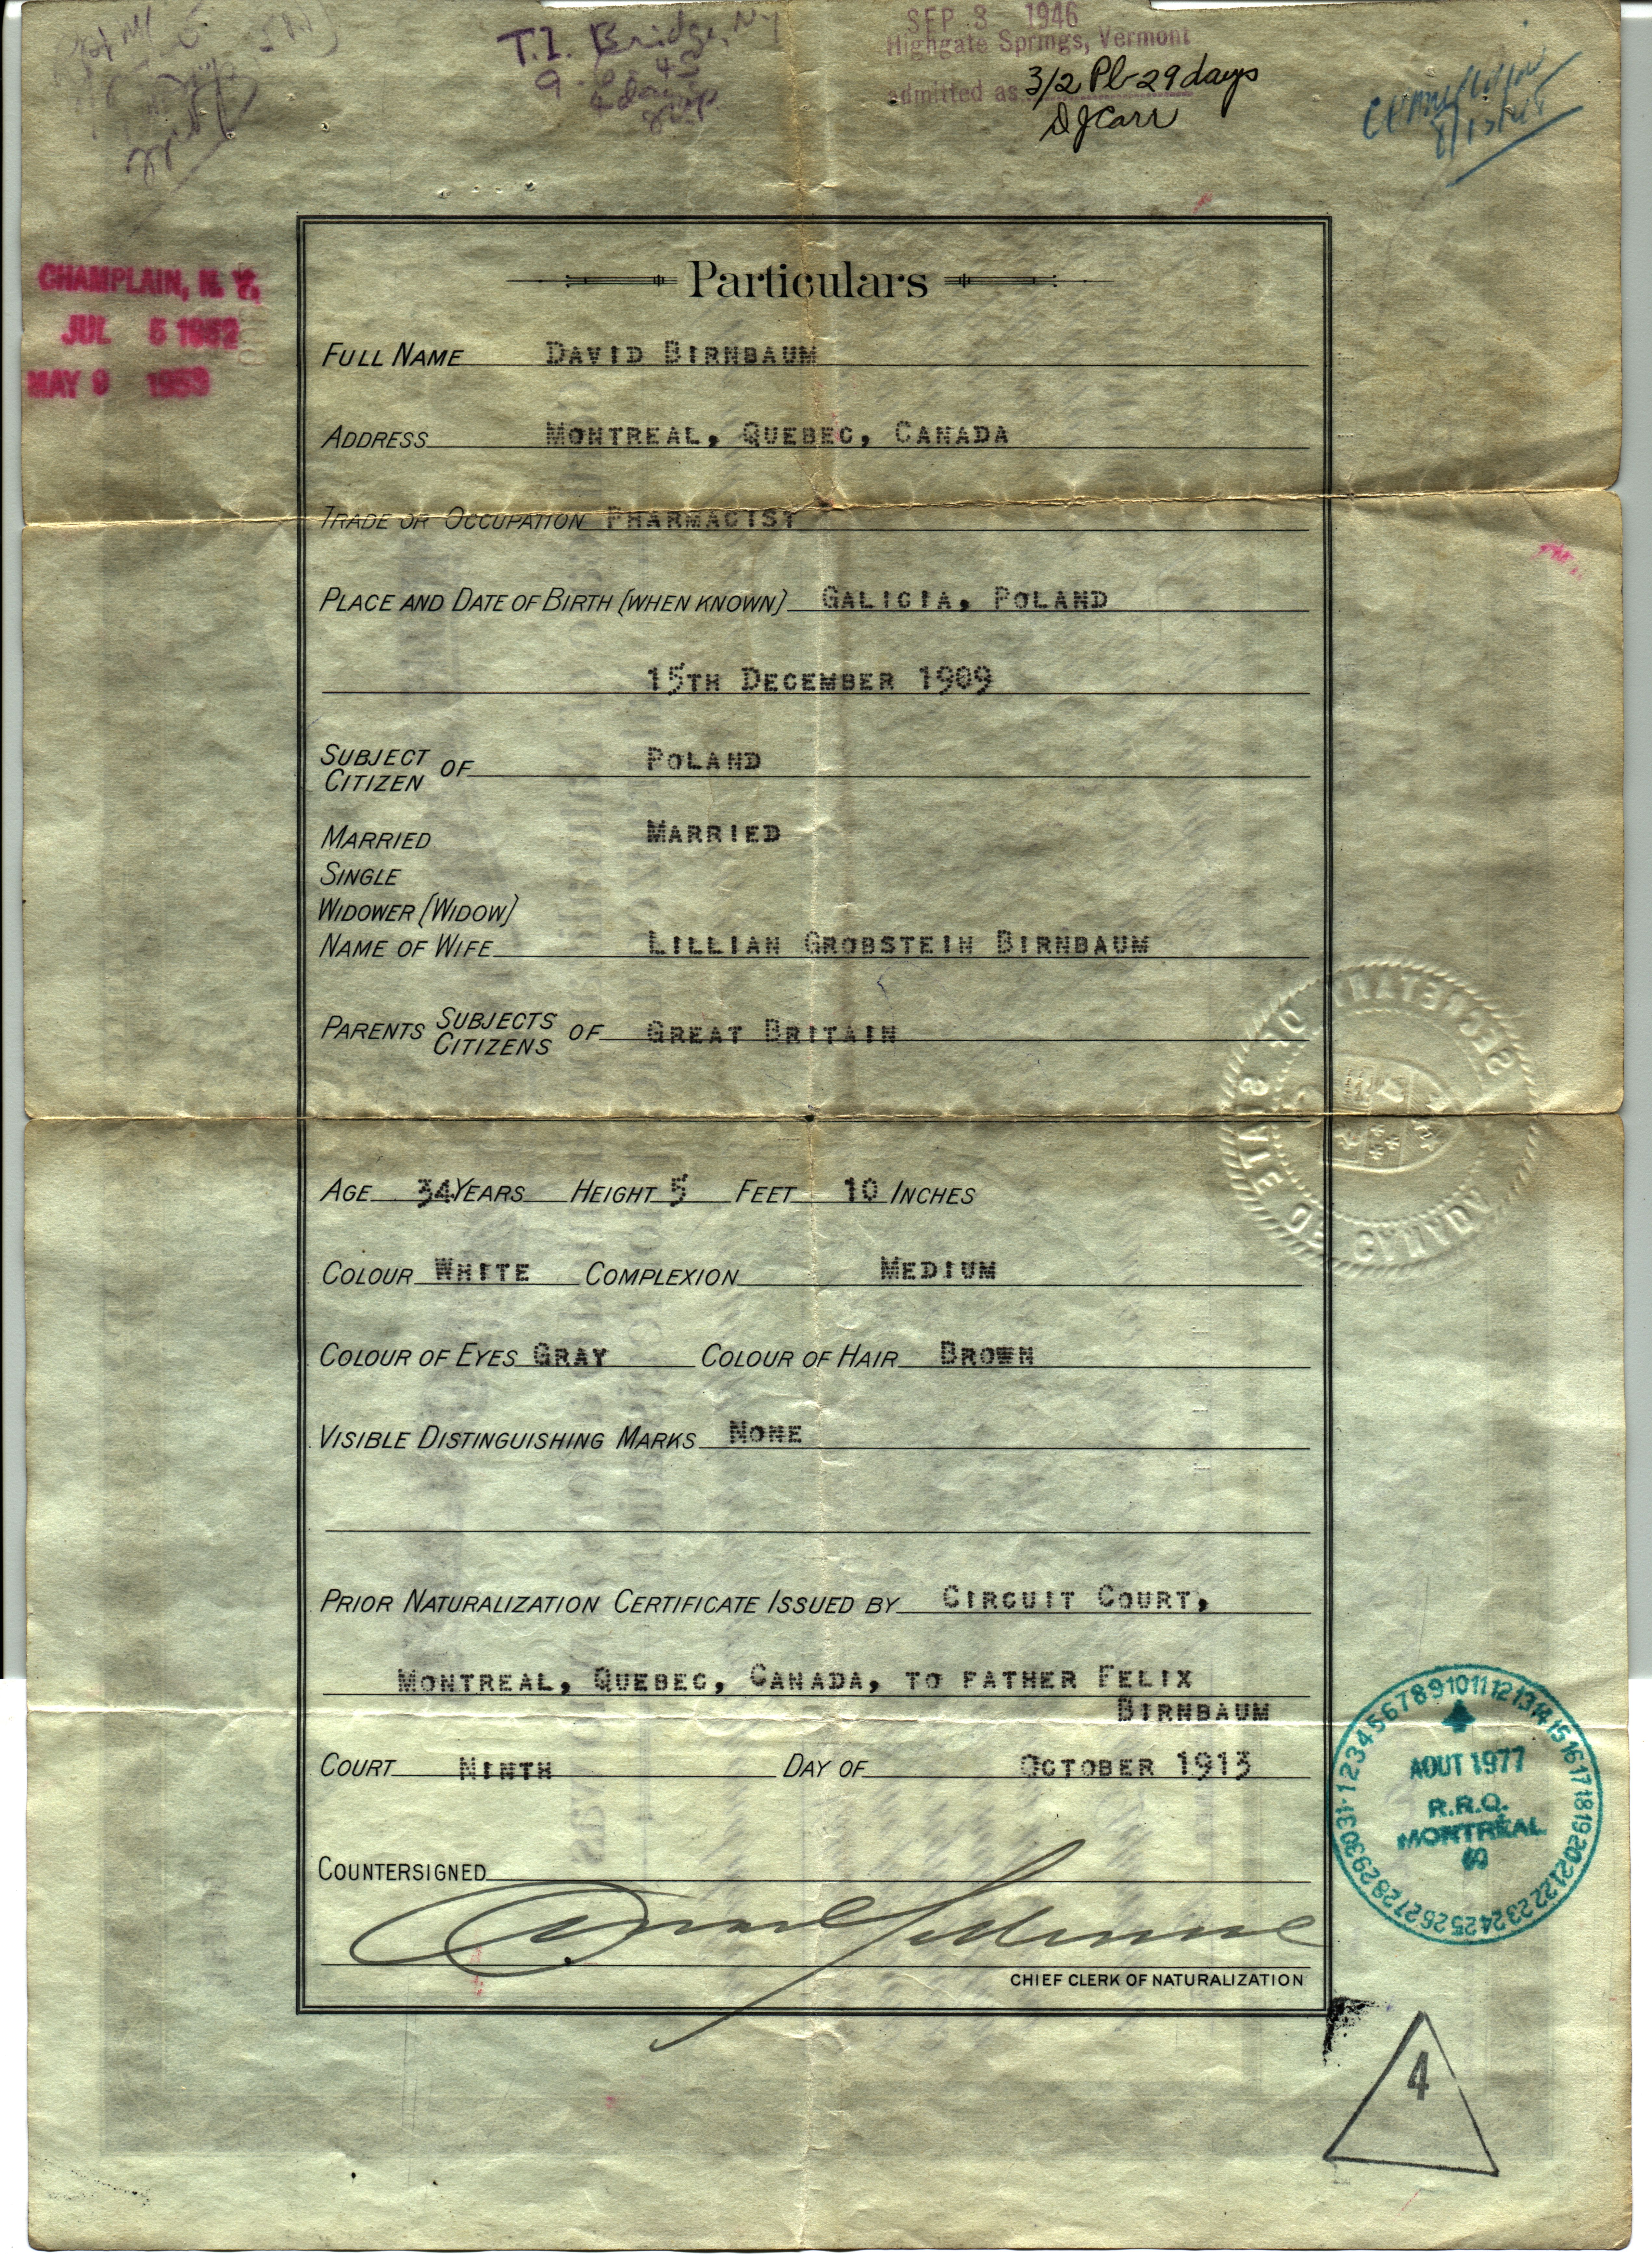 T.I. Bridge, NY
SEP 3 1946
Highgate Springs, Vermont
admitted as 3/2 Pb-29 days
DJCarr
CHAMPLAIN, N. Y.
JUL 5 1952
MAY 9 1953
Particulars
FULL NAME DAVID BIRNBAUM
ADDRESS MONTREAL, QUEBEC, CANADA
TRADE OR OCCUPATION PHARMACIST
PLACE AND DATE OF BIRTH (WHEN KNOWN) GALICIA, POLAND
15TH DECEMBER 1909
SUBJECT
CITIZEN OF POLAND
MARRIED MARRIED
SINGLE
WIDOWER (WIDOW)
NAME OF WIFE LILLIAN GROBSTEIN BIRNBAUM
PARENTS SUBJECTS
CITIZENS OF GREAT BRITAIN
SECRETARY OF STATE OF CANADA
AGE 34 YEARS HEIGHT 5 FEET 10 INCHES
COLOUR WHITE COMPLEXION MEDIUM
COLOUR OF EYES GRAY COLOUR OF HAIR BROWN
VISIBLE DISTINGUISHING MARKS NONE
PRIOR NATURALIZATION CERTIFICATE ISSUED BY CIRCUIT COURT,
MONTREAL, QUEBEC, CANADA, TO FATHER FELIX
BIRNBAUM
COURT NINTH DAY OF OCTOBER 1913
1 2 3 4 5 6 7 8 9 10 11 12 13 14 15 16 17 18 19 20 21 22 23 24 25 26 27 28 29 30 31
AOUT 1977
R.R.Q.
MONTRÉAL
COUNTERSIGNED
CHIEF CLERK OF NATURALIZATION
4